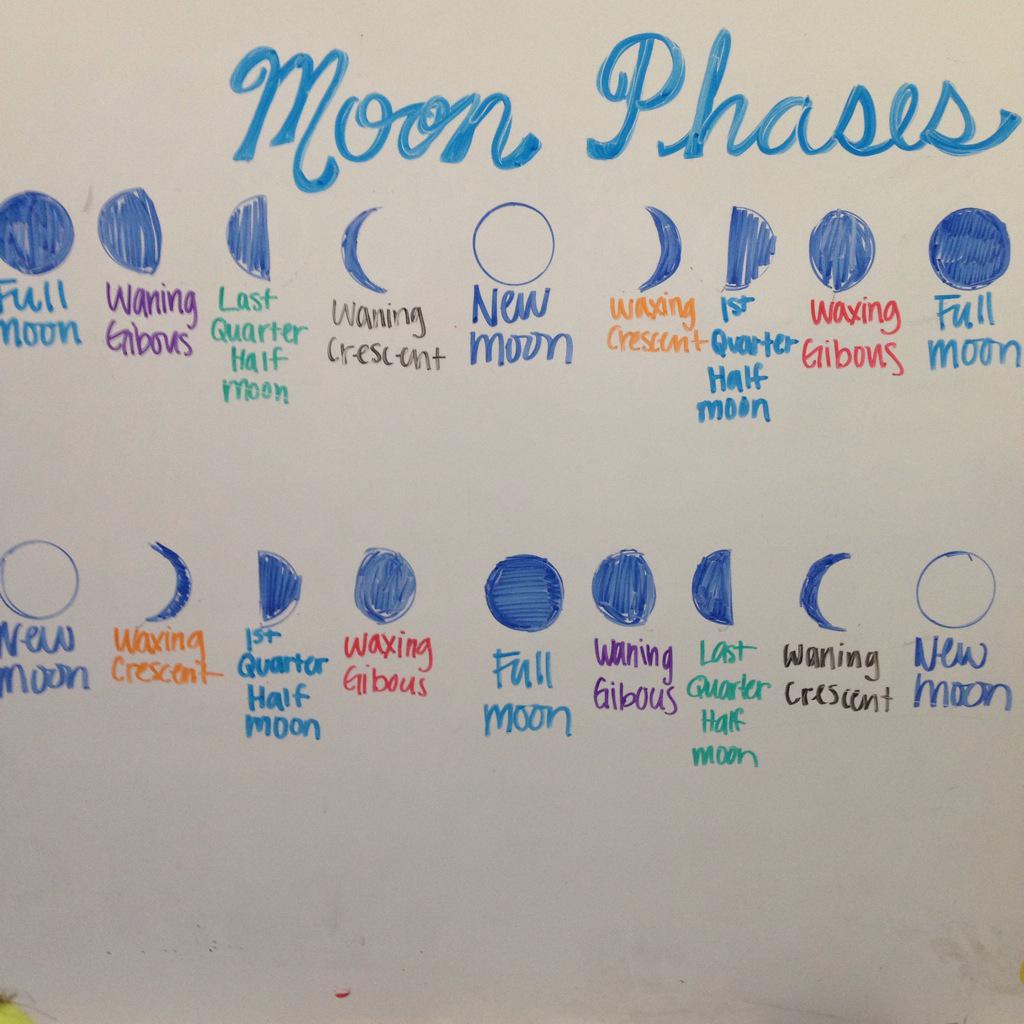 Moon Phases
Full
Moon
Waning
Gibous
Last
Quarter
Half
moon
Waning
Crescent
New
moon
waxing
Crescent
1st
Quarter
Half
moon
Waxing
Gibous
Full
moon
New
moon
Waxing
Crescent
1st
Quarter
Half
moon
Waxing
Gibous
Full
moon
Waning
Gibous
Last
Quarter
Half
moon
Waning
Crescent
New
moon